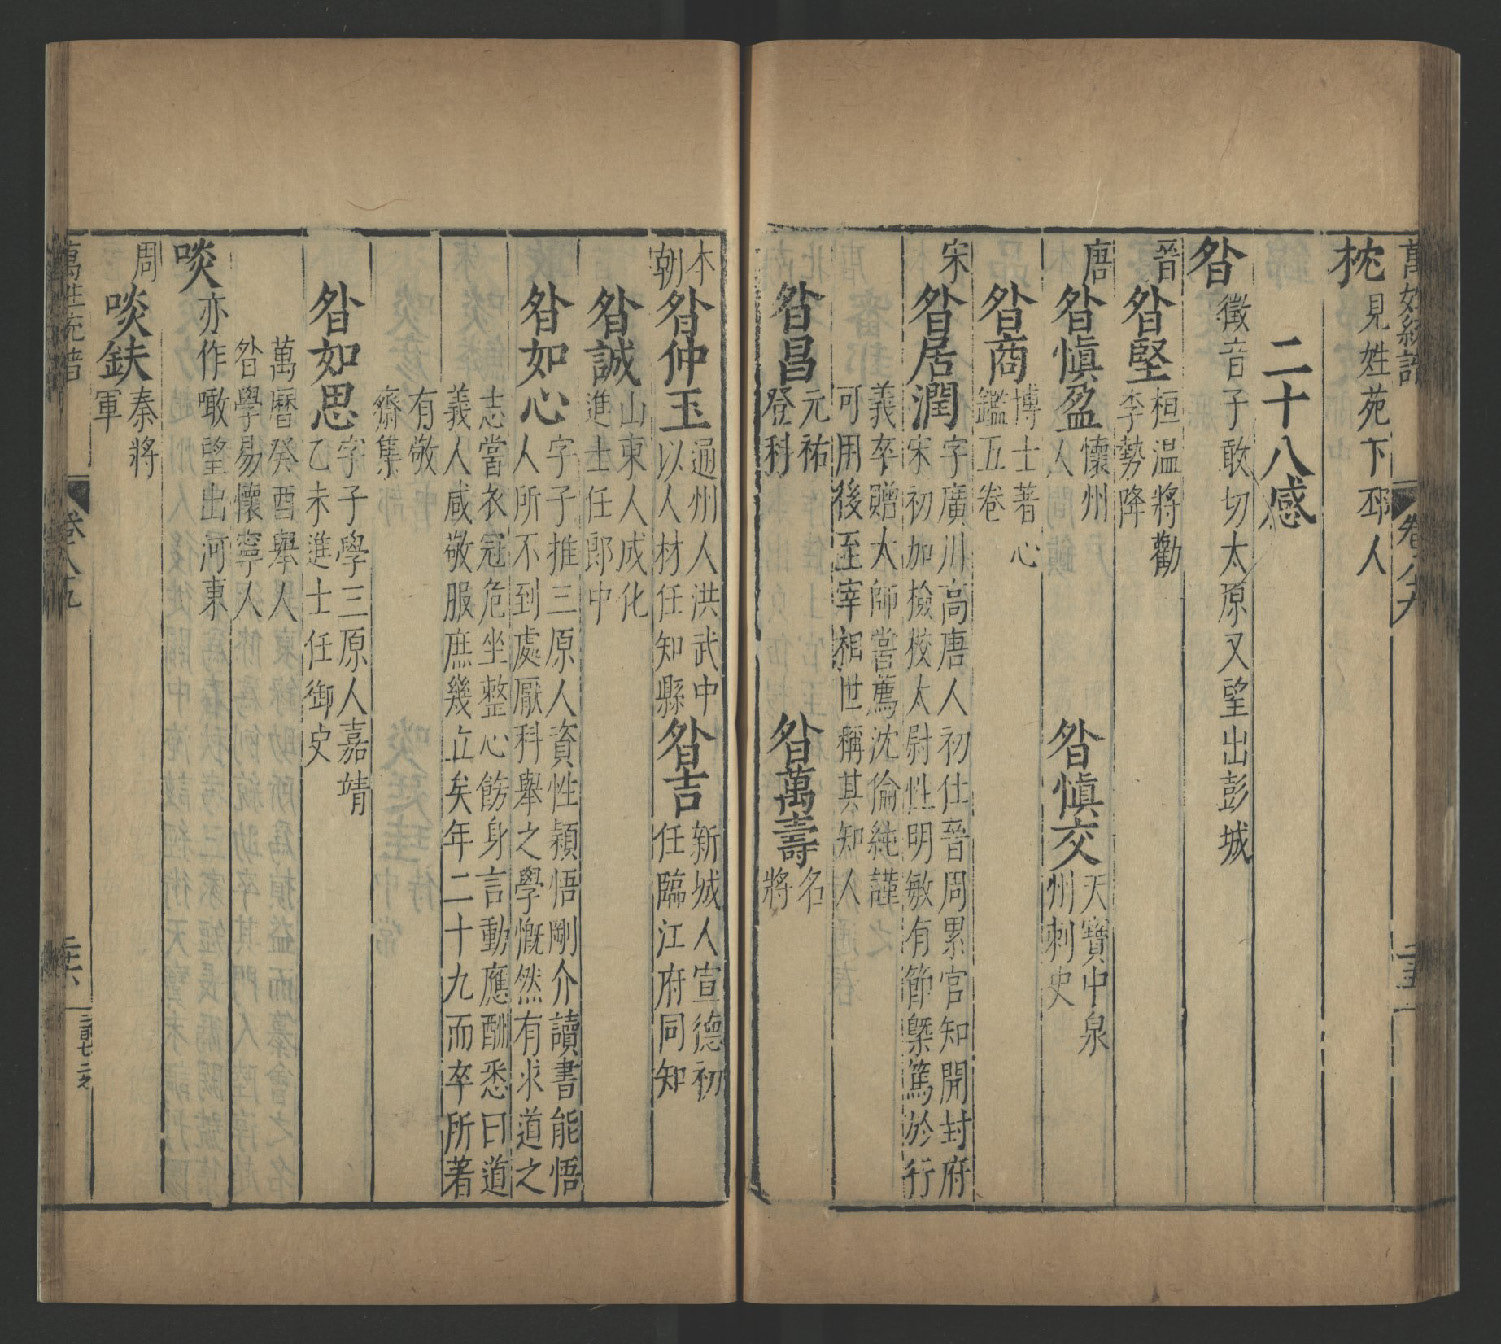 萬姓統譜 卷八六 二十五
枕 見姓苑下邳人
二十八感
昝 徵音子敢切太原又望出彭城
晉 昝堅 桓温將勸李勢降
唐 昝愼盈 懷州人 昝愼交 天寶中泉州刺史
昝商 博士著心鑑五卷
宋 昝居潤 字廣川高唐人初仕晉周累官知開封府
宋初加檢校太尉性明敏有節槩篤於行
義卒贈太師嘗薦沈倫純謹
可用後至宰相世稱其知人
昝昌 元祐登科 昝萬壽 名將
本朝 昝仲玉 通州人洪武中以人材任知縣 昝吉 新城人宣德初任臨江府同知
昝誠 山東人成化進士任郎中
昝如心 字子推三原人資性穎悟剛介讀書能悟
人所不到處厭科舉之學慨然有求道之
志當衣冠危坐整心飭身言動應酬悉曰道
義人咸敬服庶幾立矣年二十九而卒所著
有敬齋集
昝如思 字子學三原人嘉靖乙未進士任御史
萬曆癸酉舉人
昝學易懷寧人
啖 亦作噉望出河東
周 啖鈇 秦將軍
萬姓統譜 卷八五 二十六